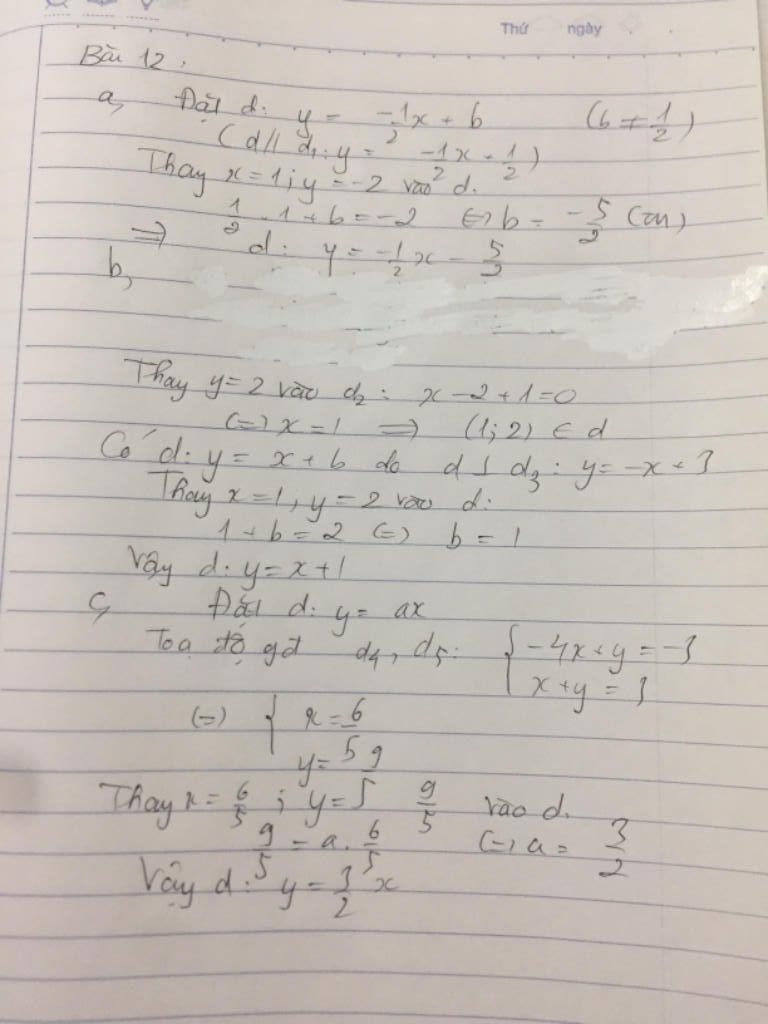 Thứ ngày
Bài 12,
a, Đặt d: y = -1/2 x + b (b ≠ 1/2)
(d // d₁: y = -1/2 x + 1/2)
Thay x = 1; y = -2 vào d.
1/2 . 1 + b = -2 ⇔ b = -5/2 (TM)
⇒ d: y = -1/2 x - 5/2
b,
Thay y = 2 vào d₂: x - 2 + 1 = 0
⇔ x = 1 ⇒ (1; 2) ∈ d
Có d: y = x + b do d ⊥ d₃: y = -x + 3
Thay x = 1, y = 2 vào d:
1 + b = 2 ⇔ b = 1
Vậy d: y = x + 1
c, Đặt d: y = ax
Toạ độ gđ d₄, d₅: { -4x + y = -3
x + y = 3
⇔ { x = 6/5
y = 9/5
Thay x = 6/5; y = 9/5 vào d.
9/5 = a . 6/5 ⇔ a = 3/2
Vậy d: y = 3/2 x